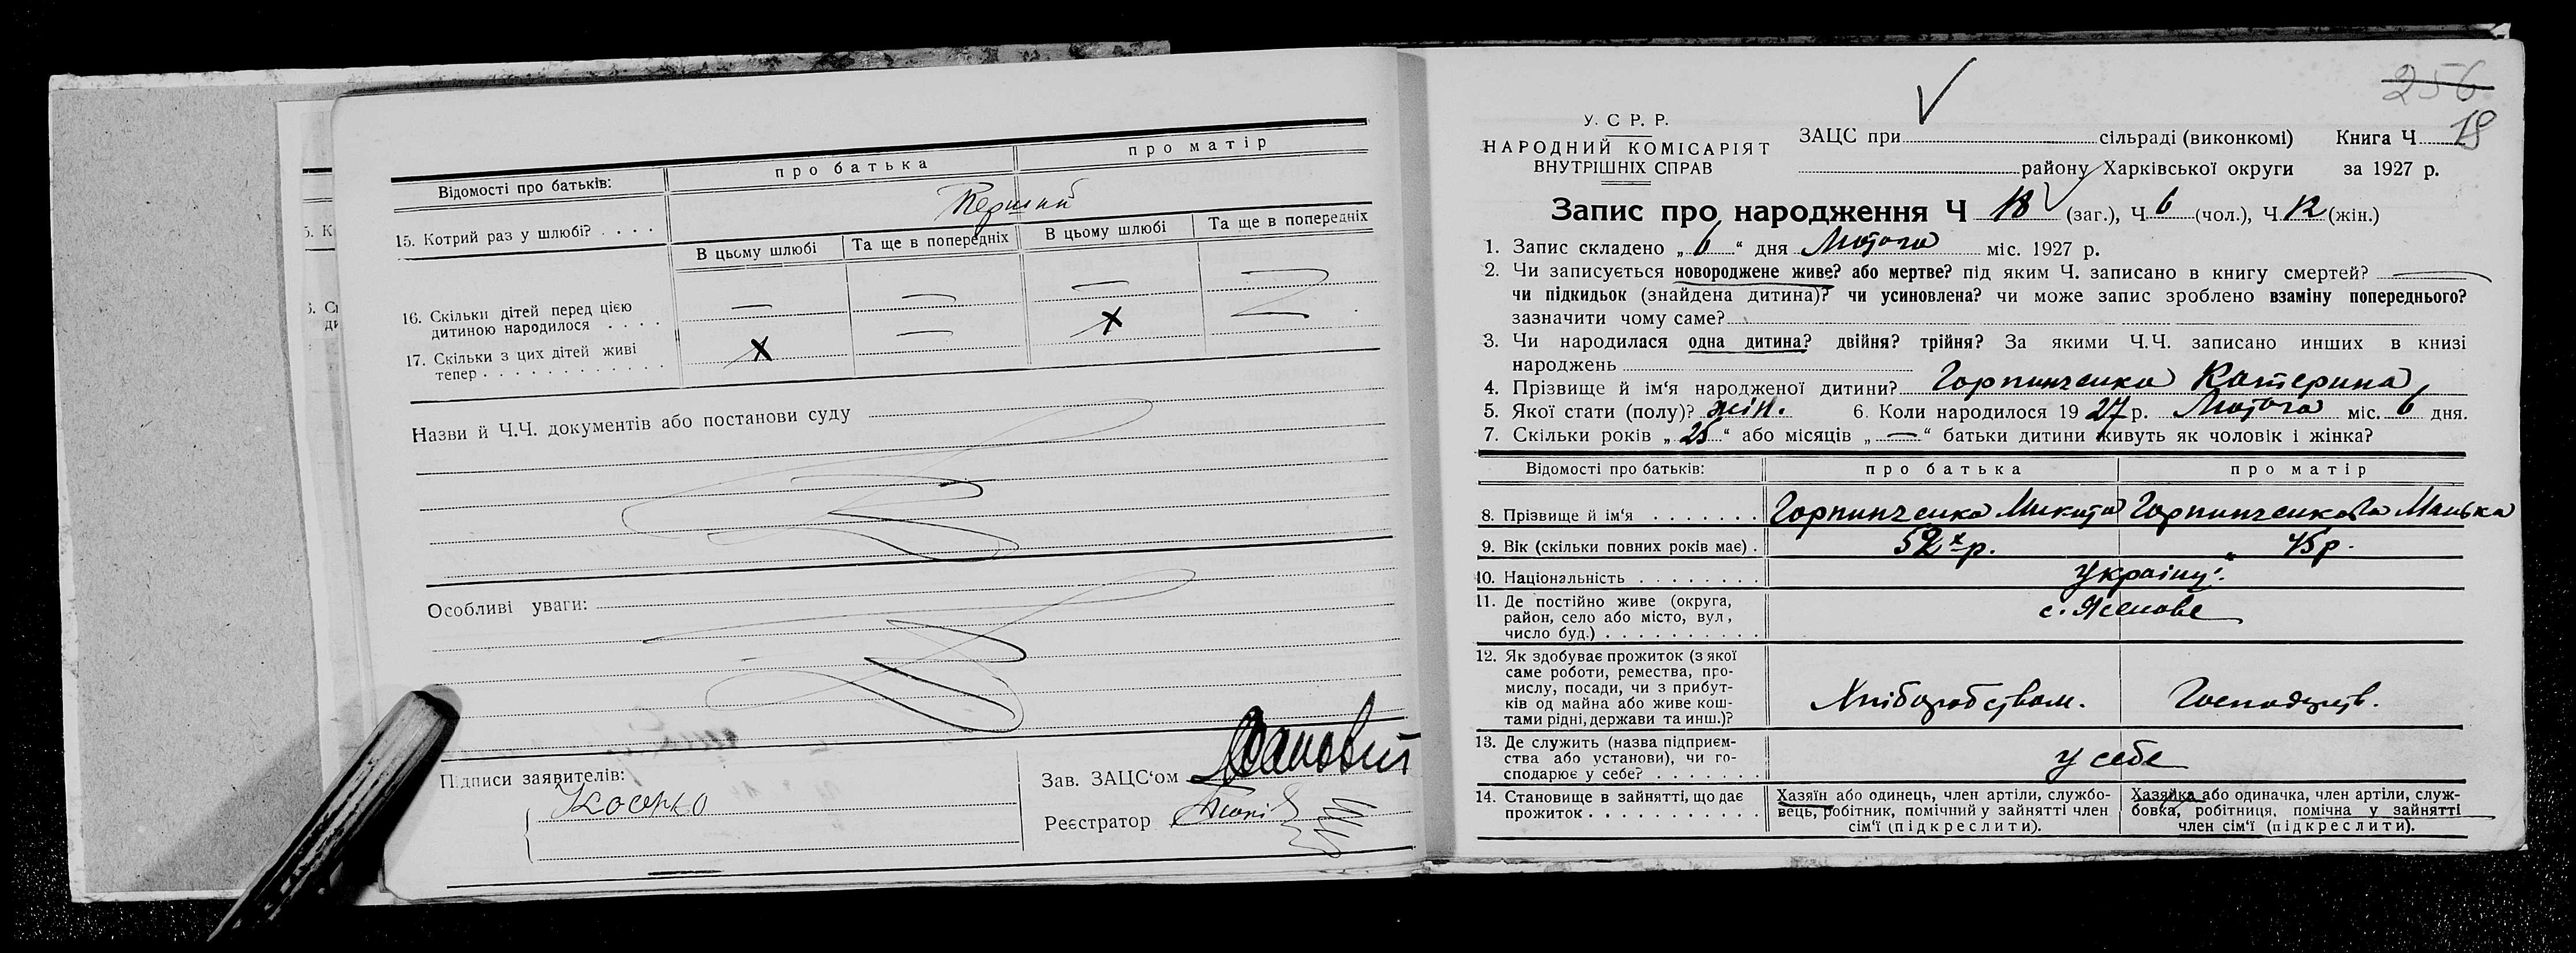 Відомості про батьків:
про батька
про матір
15. Котрий раз у шлюбі? . . . .
Перший
В цьому шлюбі
Та ще в попередніх
В цьому шлюбі
Та ще в попередніх
16. Скільки дітей перед цією
дитиною народилося . . . .
— — —
17. Скільки з цих дітей живі
тепер . . . . . . . . . . . .
х — х
Назви й Ч.Ч. документів або постанови суду
Особливі уваги:
Підписи заявителів:
Зав. ЗАЦС‘ом
Реєстратор
256
У. С Р. Р.
НАРОДНИЙ КОМІСАРІЯТ
ВНУТРІШНІХ СПРАВ
ЗАЦС при сільраді (виконкомі) Книга Ч 18
району Харківської округи за 1927 р.
Запис про народження Ч 18 (заг.), Ч. 6 (чол.), Ч. 12 (жін.)
1. Запис складено „ 6 “ дня Лютого міс. 1927 р.
2. Чи записується новороджене живе? або мертве? під яким Ч. записано в книгу смертей? —
чи підкидьок (знайдена дитина)? чи усиновлена? чи може запис зроблено взаміну попереднього?
зазначити чому саме?
3. Чи народилася одна дитина? двійня? трійня? За якими Ч.Ч. записано инших в книзі
народжень
4. Прізвище й ім‘я народженої дитини? Горпинченко Катерина
5. Якої стати (полу)? жін. 6. Коли народилося 19 27 р. Лютого міс. 6 дня.
7. Скільки років „ 25 “ або місяців „ — “ батьки дитини живуть як чоловік і жінка?
Відомості про батьків:
про батька
про матір
8. Прізвище й ім‘я . . . . . . .
Горпинченко Микита
Горпинченкова
9. Вік (скільки повних років має) .
52 х р.
45 р.
10. Національність . . . . . . . .
Україну.
11. Де постійно живе (округа,
район, село або місто, вул,
число буд.) . . . . . . . . . . .
с. Ясенове
12. Як здобуває прожиток (з якої
саме роботи, ремества, про-
мислу, посади, чи з прибут-
ків од майна або живе кош-
тами рідні, держави та инш.)?
Хліборобством.
Господарств.
13. Де служить (назва підприєм-
ства або установи), чи го-
сподарює у себе? . . . . . . .
у себе
14. Становище в зайнятті, що дає
прожиток . . . . . . . . . . .
Хазяїн або одинець, член артіли, службо-
вець, робітник, помічний у зайнятті член
сім‘ї (підкреслити).
Хазяйка або одиначка, член артіли, служ-
бовка, робітниця, помічна у зайнятті
член сім‘ї (підкреслити).